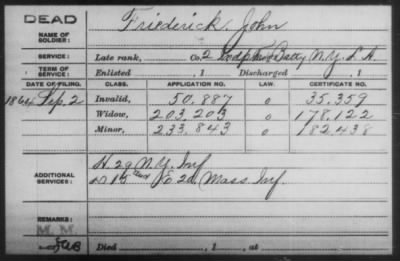 DEAD
NAME OF SOLDIER: Friederick, John
SERVICE: Late rank, Co. 2 Batty N.Y. L.A.
TERM OF SERVICE: Enlisted , 1 Discharged , 1
DATE OF FILING. CLASS. APPLICATION NO. LAW. CERTIFICATE NO.
1864 Sep. 2 Invalid, 50.887 0 35.359
Widow, 203.203 0 178.122
Minor, 233.843 0 182.438
ADDITIONAL SERVICES: H 29 N.Y. Inf
D 15 and 2d Mass Inf.
REMARKS:
M. M.
Died , 1 , at